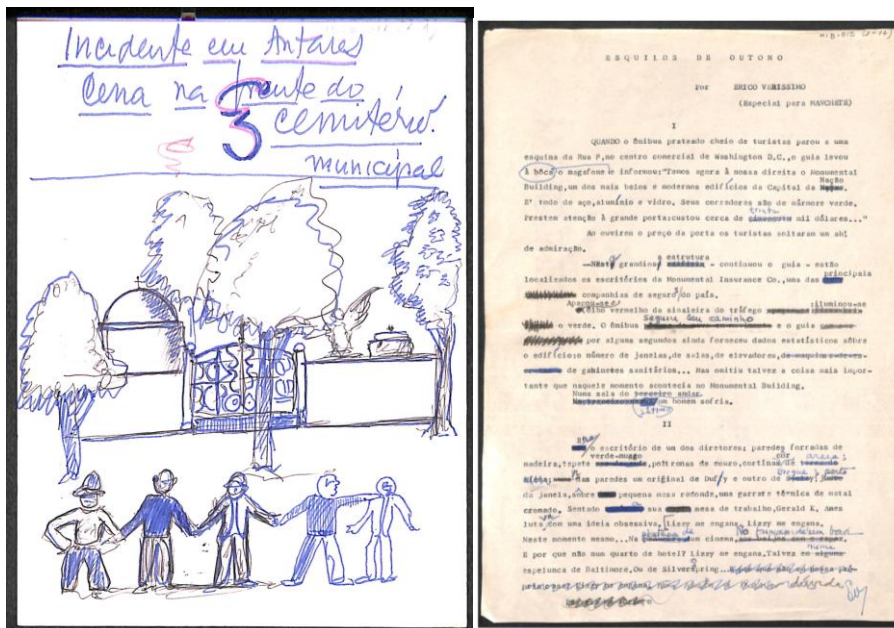 Incidente em Antares
Cena na frente do
3 cemitério.
municipal
ESQUILOS DE OUTONO
por ERICO VERISSIMO
(Especial para MANCHETE)
I
QUANDO o ônibus prateado cheio de turistas parou a uma
esquina da Rua P, no centro comercial de Washington D.C., o guia levou
à bôca o magafone e informou: "Temos agora à nossa direita o Monumental
Building, um dos mais belos e modernos edifícios da Capital da Nação
E' todo de aço, alumínio e vidro. Seus corredores são de mármore verde.
Prestem atenção à grande porta: custou cerca de trinta mil dólares..."
Ao ouvirem o preço da porta os turistas soltaram um ah!
de admiração.
grandiosa estrutura - continuou o guia - estão
localizados os escritórios da Monumental Insurance Co., uma das principais
companhias de seguro do país.
Apagou-se o olho vermelho da sinaleira do tráfego iluminou-se
o verde. O ônibus seguiu seu caminho e o guia
por alguns segundos ainda forneceu dados estatísticos sôbre
o edifício: o número de janelas, de salas, de elevadores,
de gabinetes sanitários... Mas omitiu talvez a coisa mais impor-
tante que naquele momento acontecia no Monumental Building.
Numa sala do terceiro andar
um homem sofria.
II
o escritório de um dos diretores: paredes forradas de
madeira, tapete verde-musgo, poltronas de couro, cortinas côr
nas paredes um original de Dufy e outro de Braque; perto
da janela, sôbre pequena mesa redonda, uma garrafa térmica de metal
cromado. Sentado sua mesa de trabalho, Gerald K. Ames
luta com uma ideia obsessiva. Lizzy me engana. Lizzy me engana.
Neste momento mesmo... um cinema,
E por que não num quarto de hotel? Lizzy me engana. Talvez em
espelunca de Baltimore. Ou de Silver Spring...